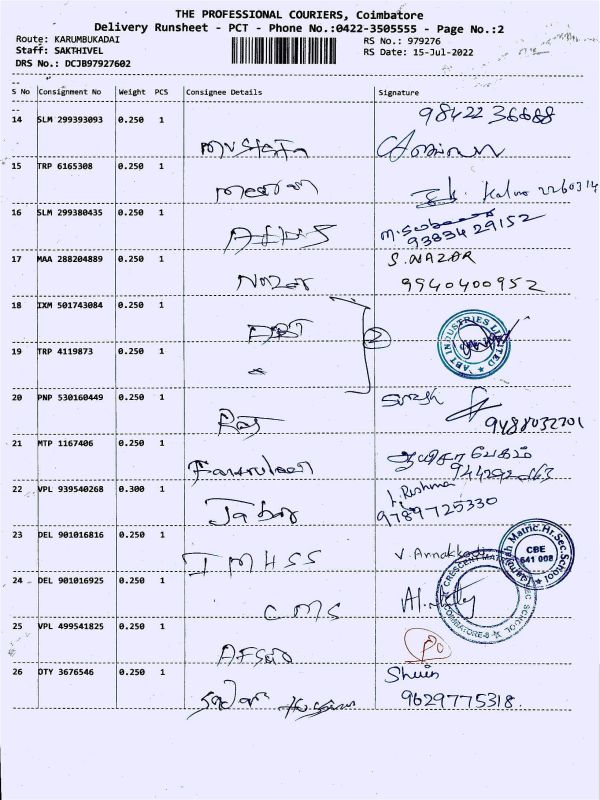 THE PROFESSIONAL COURIERS, Coimbatore
Delivery Runsheet - PCT - Phone No.:0422-3505555 - Page No.:2
Route: KARUMBUKADAI
RS No.: 979276
Staff: SAKTHIVEL
RS Date: 15-Jul-2022
DRS No.: DCJB97927602
S No Consignment No Weight PCS Consignee Details Signature
14 SLM 299393093 0.250 1 98422 36688
Mustafa
15 TRP 6165308 0.250 1
16 SLM 299380435 0.250 1
93834 29152
17 MAA 288204889 0.250 1 S. NAZAR
Nazar 9940400952
18 IXM 501743084 0.250 1
ABT 2 ABT INDUSTRIES LIMITED
19 TRP 4119873 0.250 1
20 PNP 530160449 0.250 1 Suresh
Raj 9488032701
21 MTP 1167406 0.250 1 ஆயிசா பேகம்
22 VPL 939540268 0.300 1 Reshma
Jabar 9789725330
23 DEL 901016816 0.250 1
IMHSS Matric.Hr.Sec.School CBE 641 008
24 DEL 901016925 0.250 1
CMS CRESCENT COIMBATORE-8
25 VPL 499541825 0.250 1
26 DTY 3676546 0.250 1
9629775318.